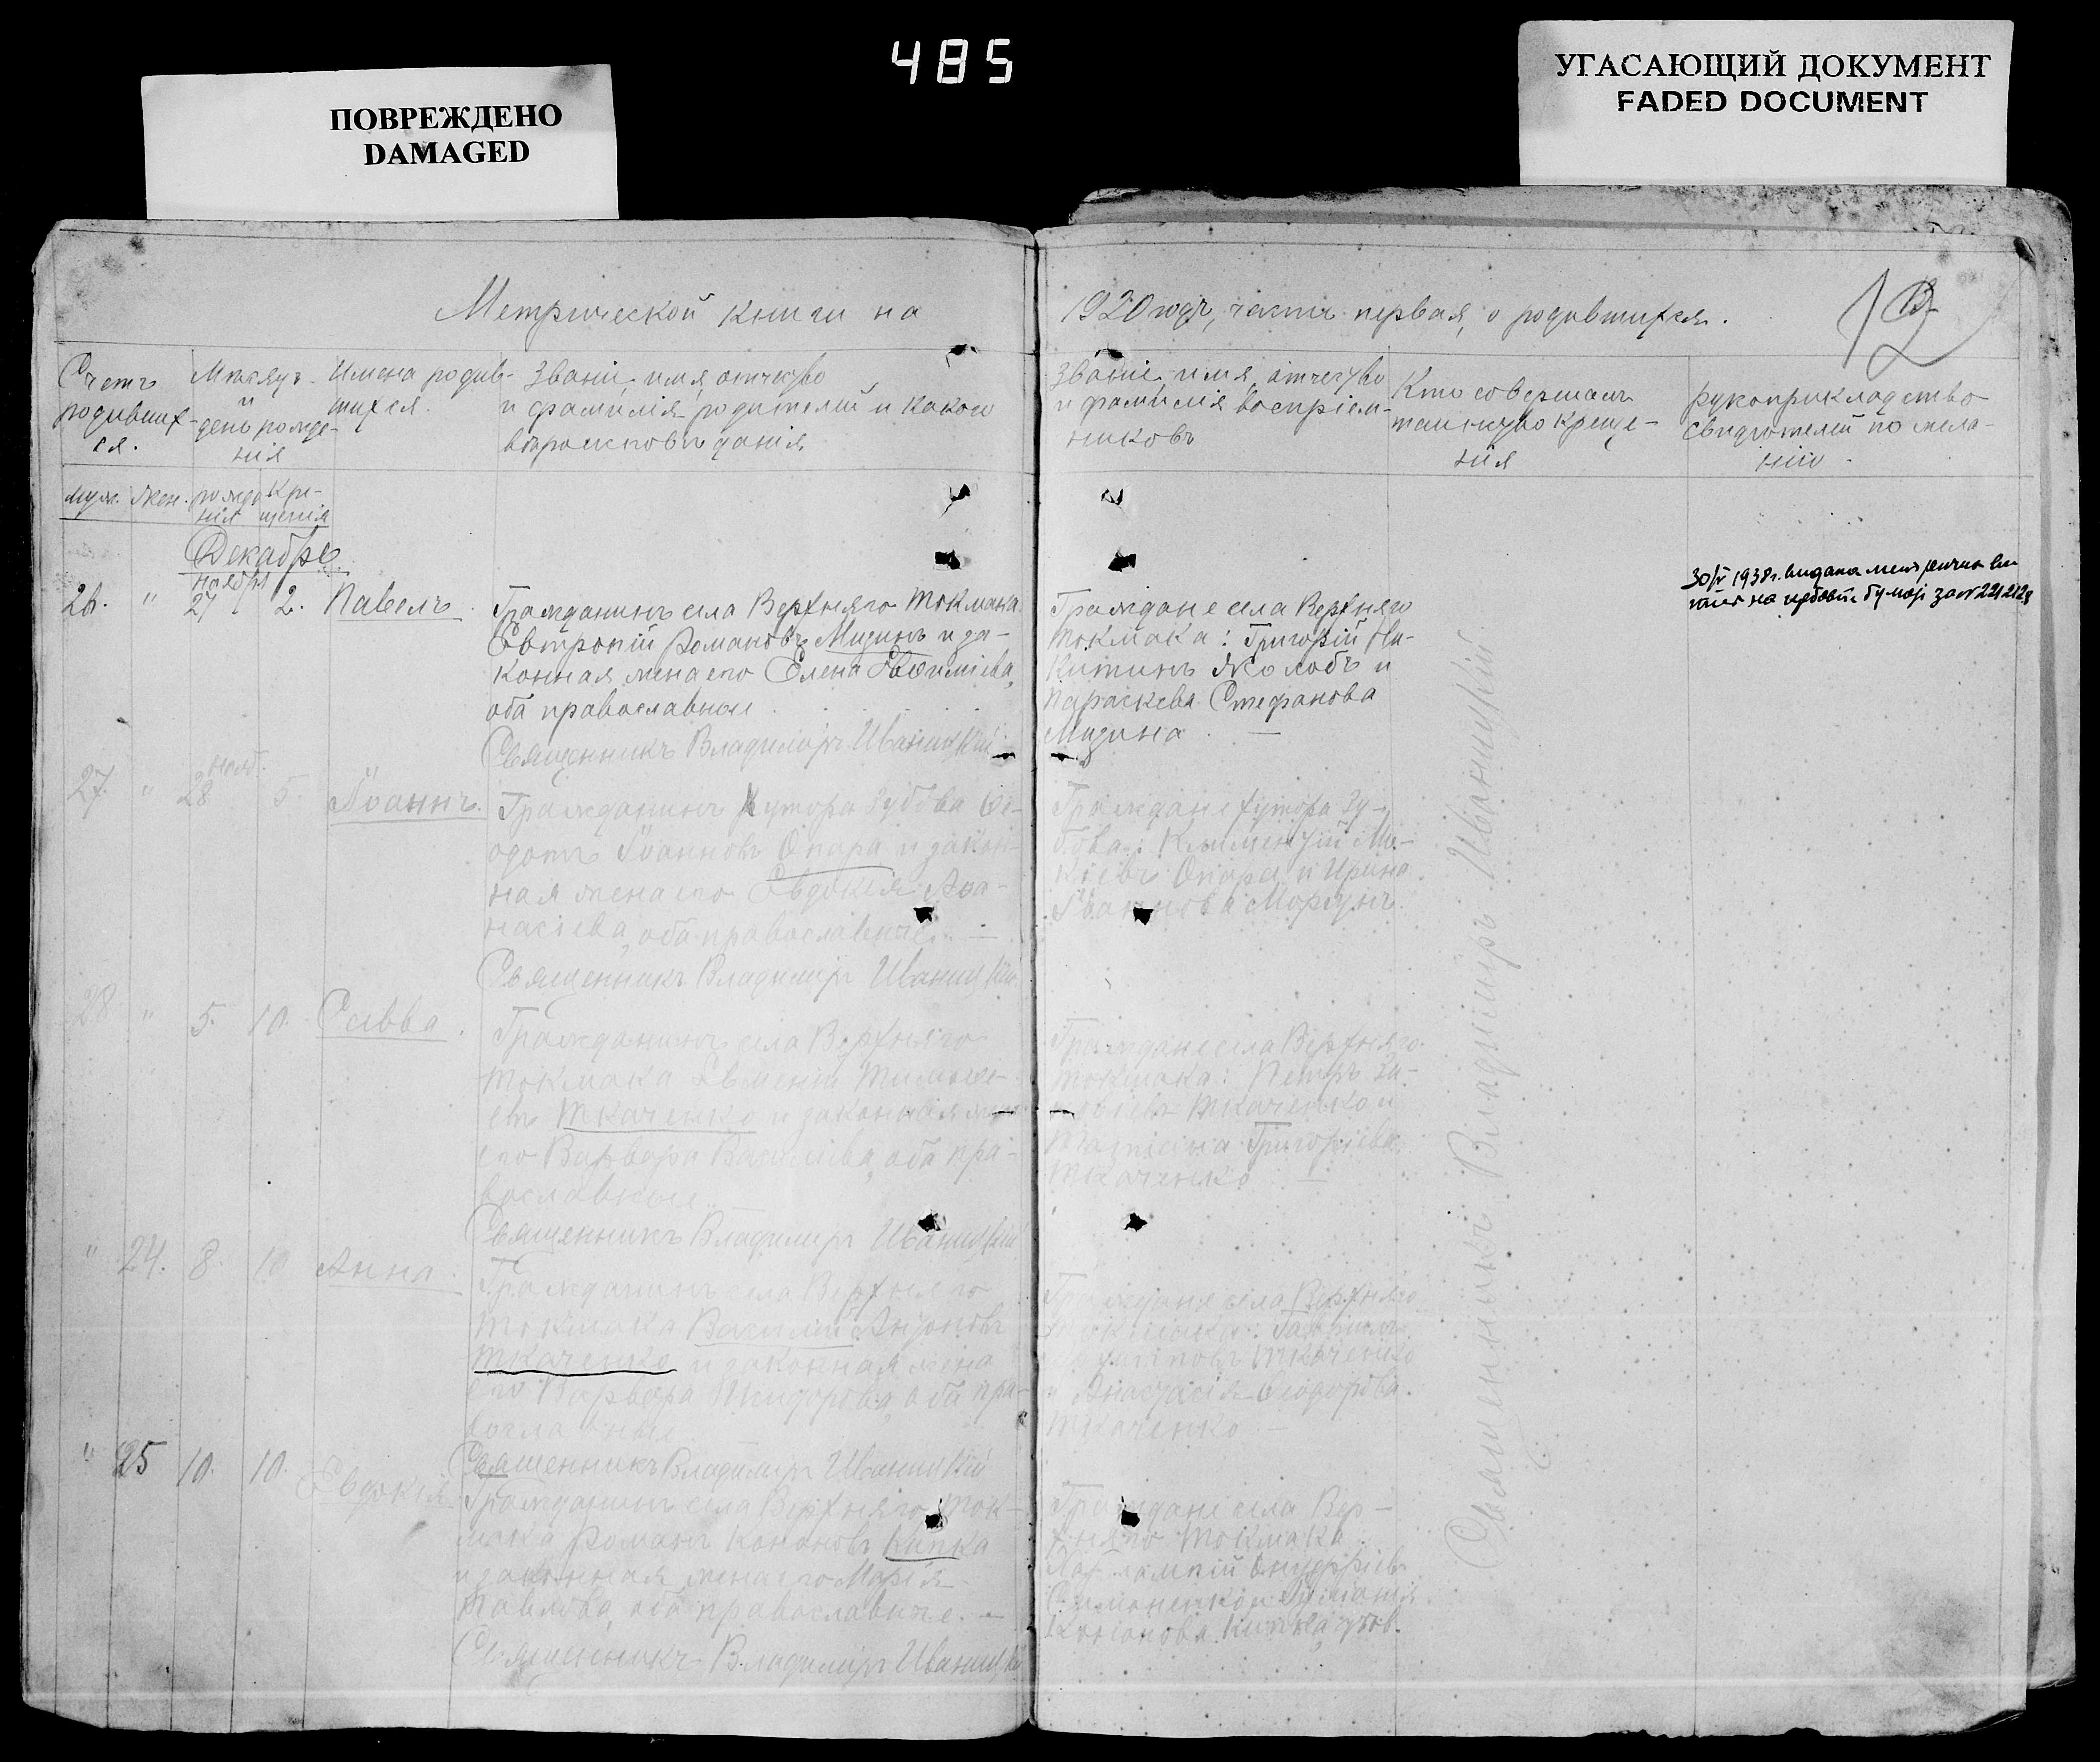 485
ПОВРЕЖДЕНО
DAMAGED
УГАСАЮЩИЙ ДОКУМЕНТ
FADED DOCUMENT
Метрической книги на
1920 годъ, часть первая, о родившихся.
12
Счетъ
родивших-
ся.
Мѣсяцъ
и
день рожде-
нія
Имена родив-
шихся.
Званіе, имя, отчество
и фамилія родителей и какого
вѣроисповѣданія
Званіе, имя, отчество
и фамилія воспріем-
никовъ
Кто совершалъ
таинство креще-
нія
Рукоприкладство
свидѣтелей по жела-
нію
муж. Жен. рожде- Кре-
нія щенія
Декабрь
26. " ноября 27 2. Павелъ
Гражданинъ села Верхняго Токмака
Евтропій Романовъ Мизинъ и за-
конная жена его Елена Евѳиміева,
оба православные
Священникъ Владиміръ Иваницкій
Граждане села Верхняго
Токмака: Григорій Ни-
китинъ Жолобъ и
Параскева Стефанова
Мизина
1938 г. выдана
за № 221212
27. " нояб. 28 5. Іоаннъ.
Гражданинъ хутора Зубова Ѳе-
одотъ Іоанновъ Опара и закон-
ная жена его Евдокія Аѳа-
насіева, оба православные.
Священникъ Владиміръ Иваницкій
Граждане хутора Зу-
бова: Климентій Мо-
кіевъ Опара и Ирина
Іоаннова Моргунъ.
28 " 5. 10. Савва.
Гражданинъ села Верхняго
Токмака Евменій Тимоѳе-
евъ Ткаченко и законная жена
его Варвара Василіева, оба пра-
вославные
Священникъ Владиміръ Иваницкій
Граждане села Верхняго
Токмака: Петръ
Ткаченко и
Григоріева
Ткаченко
" 24. 8. 10 Анна.
Гражданинъ села Верхняго
Токмака Василій Антоновъ
Ткаченко и законная жена
его Варвара Исидорова, оба пра-
вославные
Священникъ Владиміръ Иваницкій
Граждане села Верхняго
Токмака: Гавріилъ
Ткаченко
и Анастасія Ѳеодорова
Ткаченко
" 25 10. 10. Евдокія
Гражданинъ села Верхняго Ток-
мака Романъ Кононовъ Кипка
и законная жена его Марія
Павлова, оба православные.
Священникъ Владиміръ Иваницкій
Граждане села Вер-
хняго Токмака
Харлампій Онуфріевъ
Симоненко и
Кононова Кипка
Священникъ Владиміръ Иваницкій